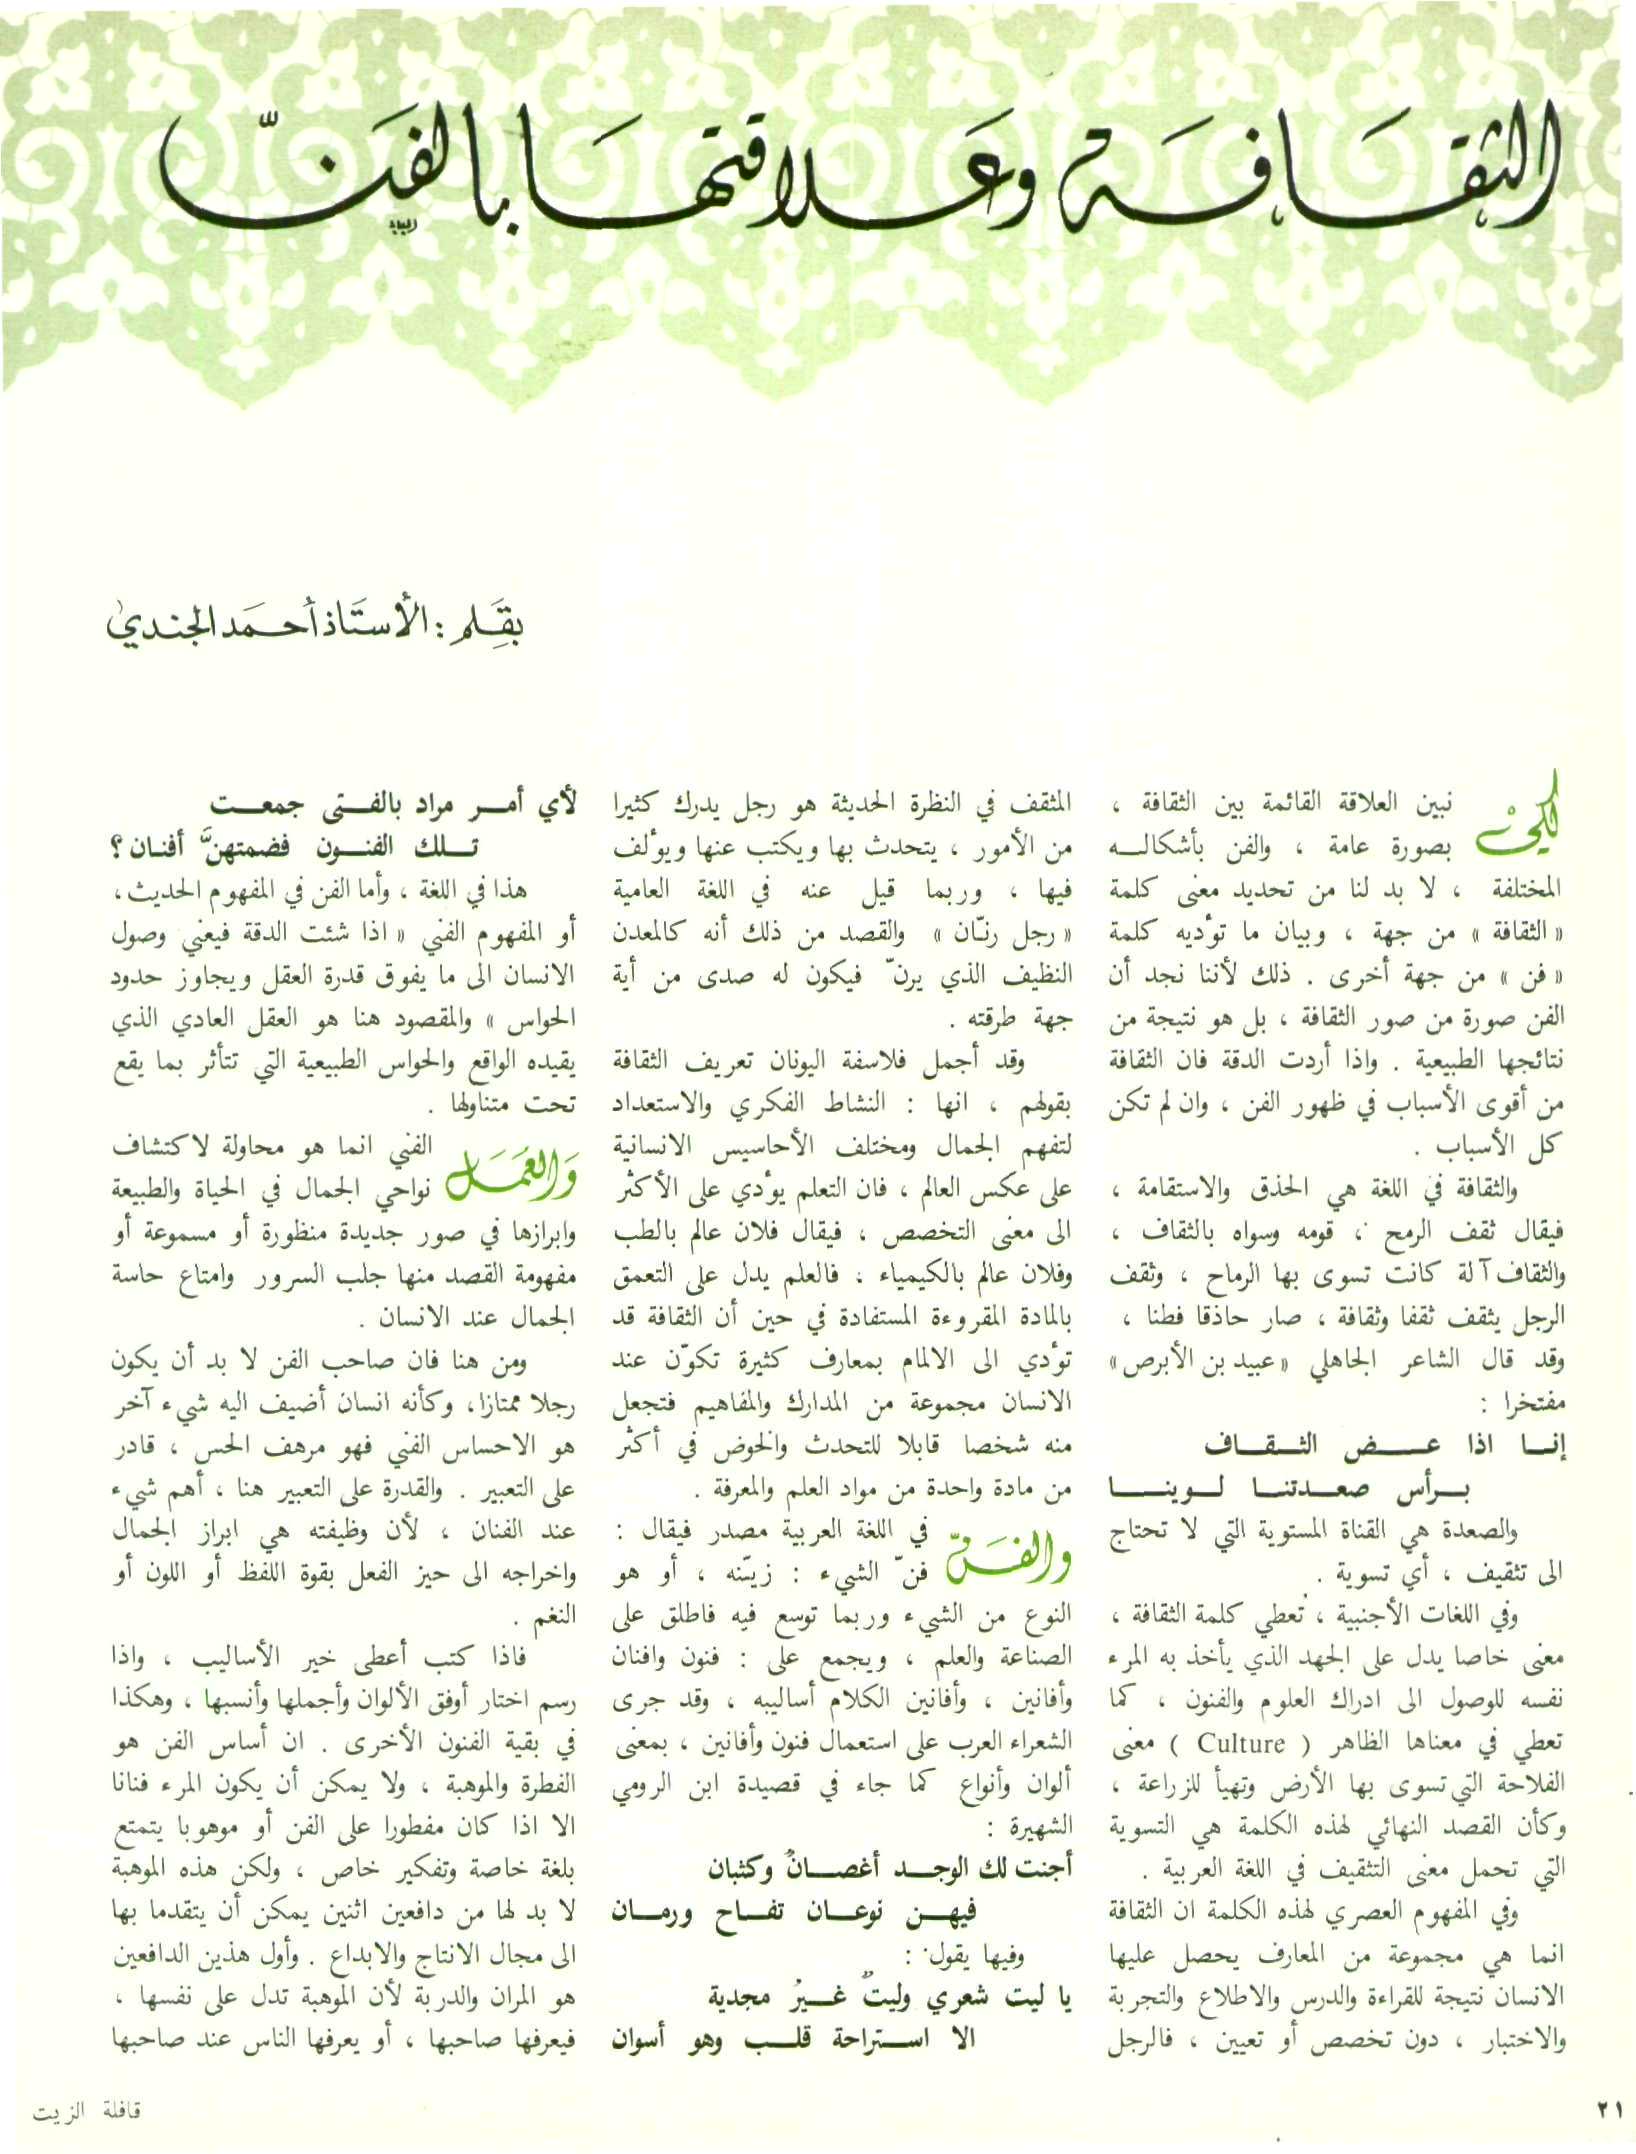 الثقافة وعلاقتها بالفنّ
بقلم : الأستاذ أحمد الجندي
لكي نبين العلاقة القائمة بين الثقافة ،
بصورة عامة ، والفن بأشكاله
المختلفة ، لا بد لنا من تحديد معنى كلمة
« الثقافة » من جهة ، وبيان ما تؤديه كلمة
« فن » من جهة أخرى . ذلك لأننا نجد أن
الفن صورة من صور الثقافة ، بل هو نتيجة من
نتائجها الطبيعية . واذا أردت الدقة فان الثقافة
من أقوى الأسباب في ظهور الفن ، وان لم تكن
كل الأسباب .
والثقافة في اللغة هي الحذق والاستقامة ،
فيقال ثقف الرمح ، قومه وسواه بالثقاف ،
والثقاف آلة كانت تسوى بها الرماح ، وثقف
الرجل يثقف ثقفا وثقافة ، صار حاذقا فطنا ،
وقد قال الشاعر الجاهلي « عبيد بن الأبرص »
مفتخرا :
إنا اذا عض الثقاف
برأس صعدتنا لوينا
والصعدة هي القناة المستوية التي لا تحتاج
الى تثقيف ، أي تسوية .
وفي اللغات الأجنبية ، تعطي كلمة الثقافة ،
معنى خاصا يدل على الجهد الذي يأخذ به المرء
نفسه للوصول الى ادراك العلوم والفنون ، كما
تعطي في معناها الظاهر ( Culture ) معنى
الفلاحة التي تسوى بها الأرض وتهيأ للزراعة ،
وكأن القصد النهائي لهذه الكلمة هي التسوية
التي تحمل معنى التثقيف في اللغة العربية .
وفي المفهوم العصري لهذه الكلمة ان الثقافة
انما هي مجموعة من المعارف يحصل عليها
الانسان نتيجة للقراءة والدرس والاطلاع والتجربة
والاختبار ، دون تخصص أو تعيين ، فالرجل
المثقف في النظرة الحديثة هو رجل يدرك كثيرا
من الأمور ، يتحدث بها ويكتب عنها ويؤلف
فيها ، وربما قيل عنه في اللغة العامية
« رجل رنّان » والقصد من ذلك أنه كالمعدن
النظيف الذي يرنّ فيكون له صدى من أية
جهة طرقته .
وقد أجمل فلاسفة اليونان تعريف الثقافة
بقولهم ، انها : النشاط الفكري والاستعداد
لتفهم الجمال ومختلف الأحاسيس الانسانية
على عكس العالم ، فان التعلم يؤدي على الأكثر
الى معنى التخصص ، فيقال فلان عالم بالطب
وفلان عالم بالكيمياء ، فالعلم يدل على التعمق
بالمادة المقروءة المستفادة في حين أن الثقافة قد
تؤدي الى الالمام بمعارف كثيرة تكوّن عند
الانسان مجموعة من المدارك والمفاهيم فتجعل
منه شخصا قابلا للتحدث والخوض في أكثر
من مادة واحدة من مواد العلم والمعرفة .
والفنّ في اللغة العربية مصدر فيقال :
فنّ الشيء : زيّنه ، أو هو
النوع من الشيء وربما توسع فيه فاطلق على
الصناعة والعلم ، ويجمع على : فنون وافنان
وأفانين ، وأفانين الكلام أساليبه ، وقد جرى
الشعراء العرب على استعمال فنون وأفانين ، بمعنى
ألوان وأنواع كما جاء في قصيدة ابن الرومي
الشهيرة :
أجنت لك الوجد أغصانٌ وكثبان
فيهن نوعان تفاح ورمان
وفيها يقول :
يا ليت شعري وليتٌ غيرُ مجدية
الا استراحة قلب وهو أسوان
لأي أمر مراد بالفتى جمعت
تلك الفنون فضمتهنَّ أفنان ؟
هذا في اللغة ، وأما الفن في المفهوم الحديث ،
أو المفهوم الفني « اذا شئت الدقة فيعني وصول
الانسان الى ما يفوق قدرة العقل ويجاوز حدود
الحواس » والمقصود هنا هو العقل العادي الذي
يقيده الواقع والحواس الطبيعية التي تتأثر بما يقع
تحت متناولها .
والعمل الفني انما هو محاولة لاكتشاف
نواحي الجمال في الحياة والطبيعة
وابرازها في صور جديدة منظورة أو مسموعة أو
مفهومة القصد منها جلب السرور وامتاع حاسة
الجمال عند الانسان .
ومن هنا فان صاحب الفن لا بد أن يكون
رجلا ممتازا ، وكأنه انسان أضيف اليه شيء آخر
هو الاحساس الفني فهو مرهف الحس ، قادر
على التعبير . والقدرة على التعبير هنا ، أهم شيء
عند الفنان ، لأن وظيفته هي ابراز الجمال
واخراجه الى حيز الفعل بقوة اللفظ أو اللون أو
النغم .
فاذا كتب أعطى خير الأساليب ، واذا
رسم اختار أوفق الألوان وأجملها وأنسبها ، وهكذا
في بقية الفنون الأخرى . ان أساس الفن هو
الفطرة والموهبة ، ولا يمكن أن يكون المرء فنانا
الا اذا كان مفطورا على الفن أو موهوبا يتمتع
بلغة خاصة وتفكير خاص ، ولكن هذه الموهبة
لا بد لها من دافعين اثنين يمكن أن يتقدما بها
الى مجال الانتاج والابداع . وأول هذين الدافعين
هو المران والدربة لأن الموهبة تدل على نفسها ،
فيعرفها صاحبها ، أو يعرفها الناس عند صاحبها
٢١
قافلة الزيت